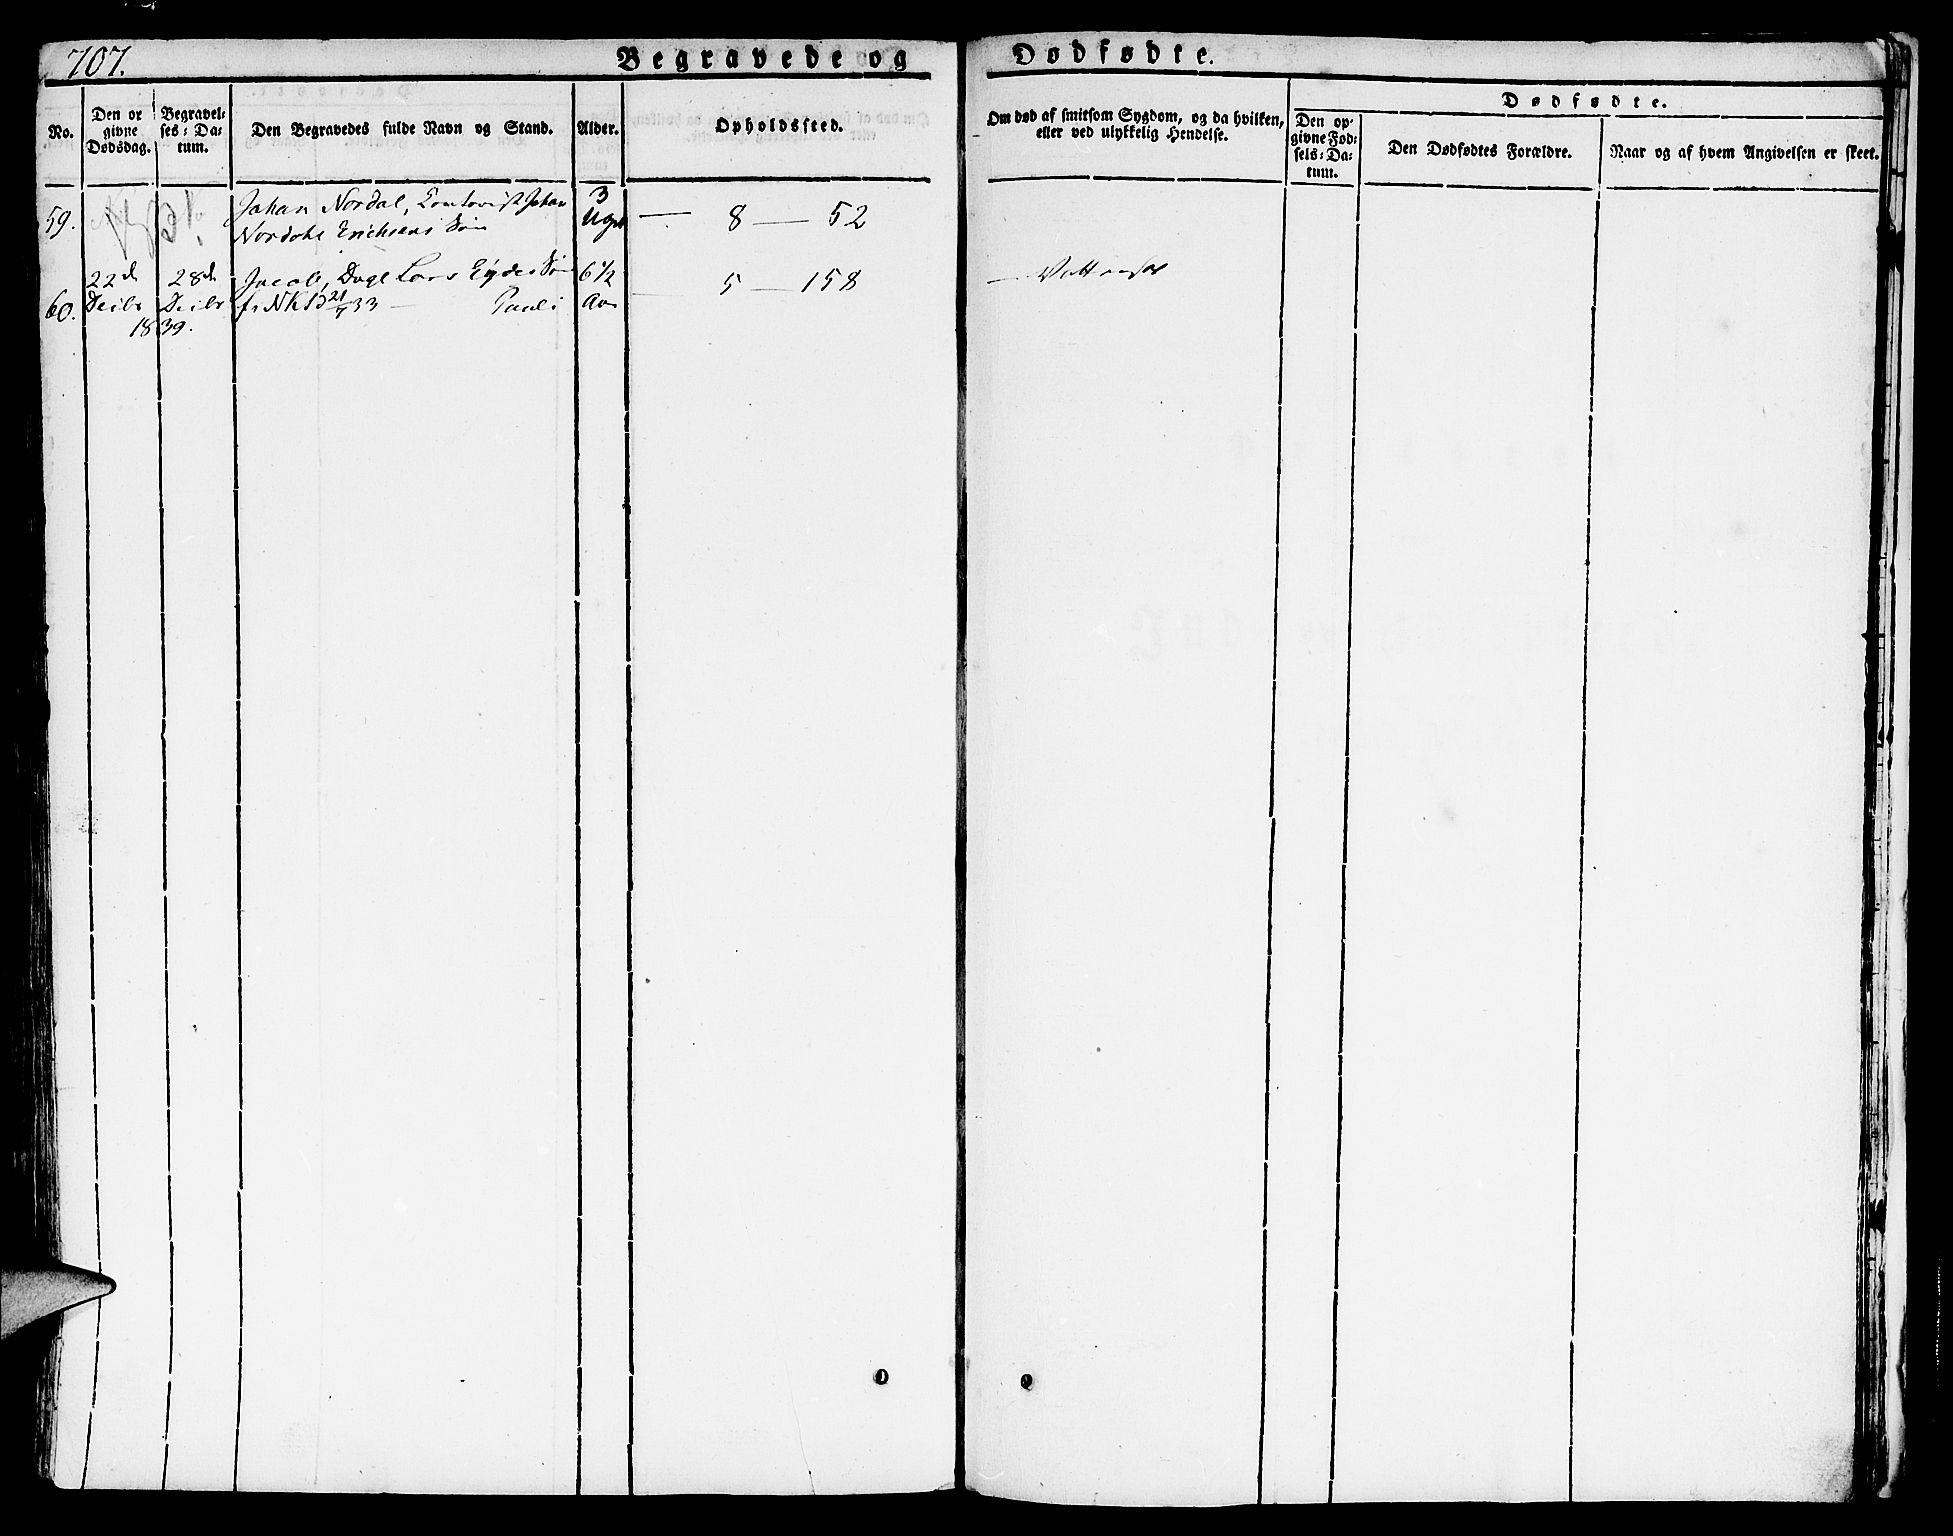 707.
Begravede og Dødfødte.
No.
Den opgivne Dødsdag.
Begravelses-Datum.
Den Begravedes fulde Navn og Stand.
Alder.
Opholdssted.
Om død af smitsom Sygdom, og da hvilken,
eller ved ulykkelig Hendelse.
Dødfødte.
Den opgivne Fødsels-Datum.
Den Dødfødtes Forældre.
Naar og af hvem Angivelsen er skeet.
59. Johan Nordal, Johan 3
Nordahl Erichsens Søn Uger — 8 — 52
22de 28de Jacob, Lars Eydes Søn 6 1/2
60. Decbr Decbr 21/7 33 — Aar — 5 — 158
1839.